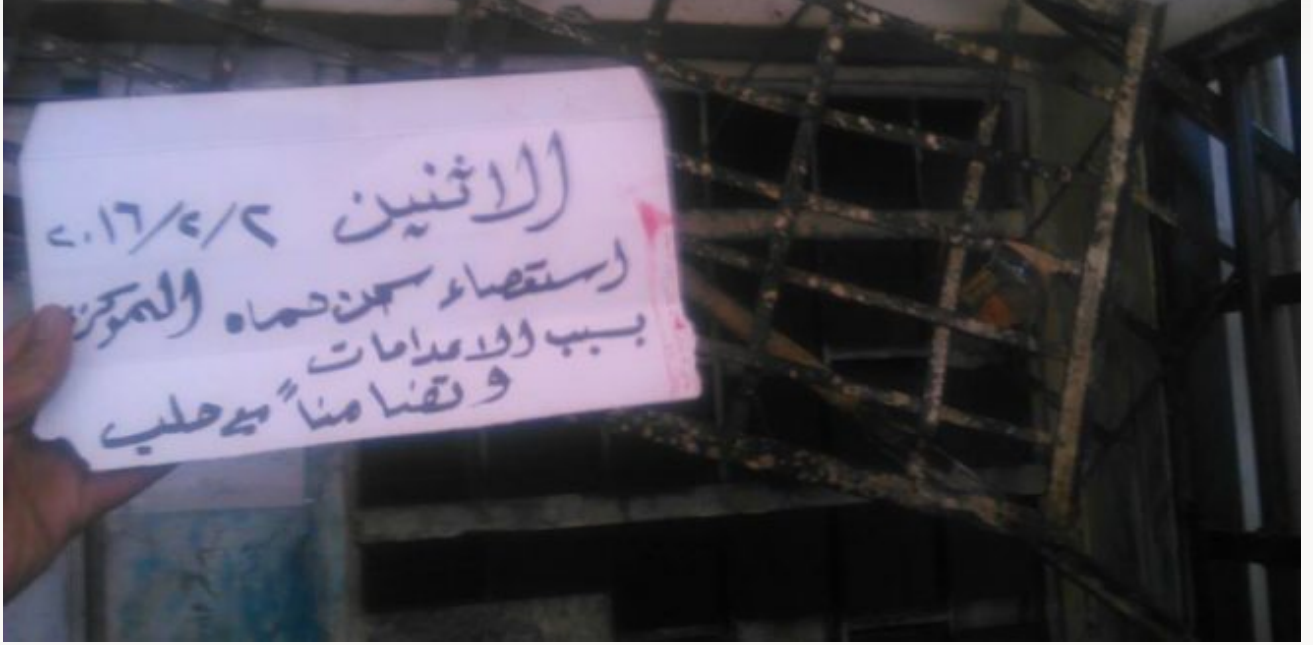 الاثنين ٢٠١٦/٢/٢
استعصاء سجن حماه المركزي
بسبب الاعدامات
و تضامناً مع حلب